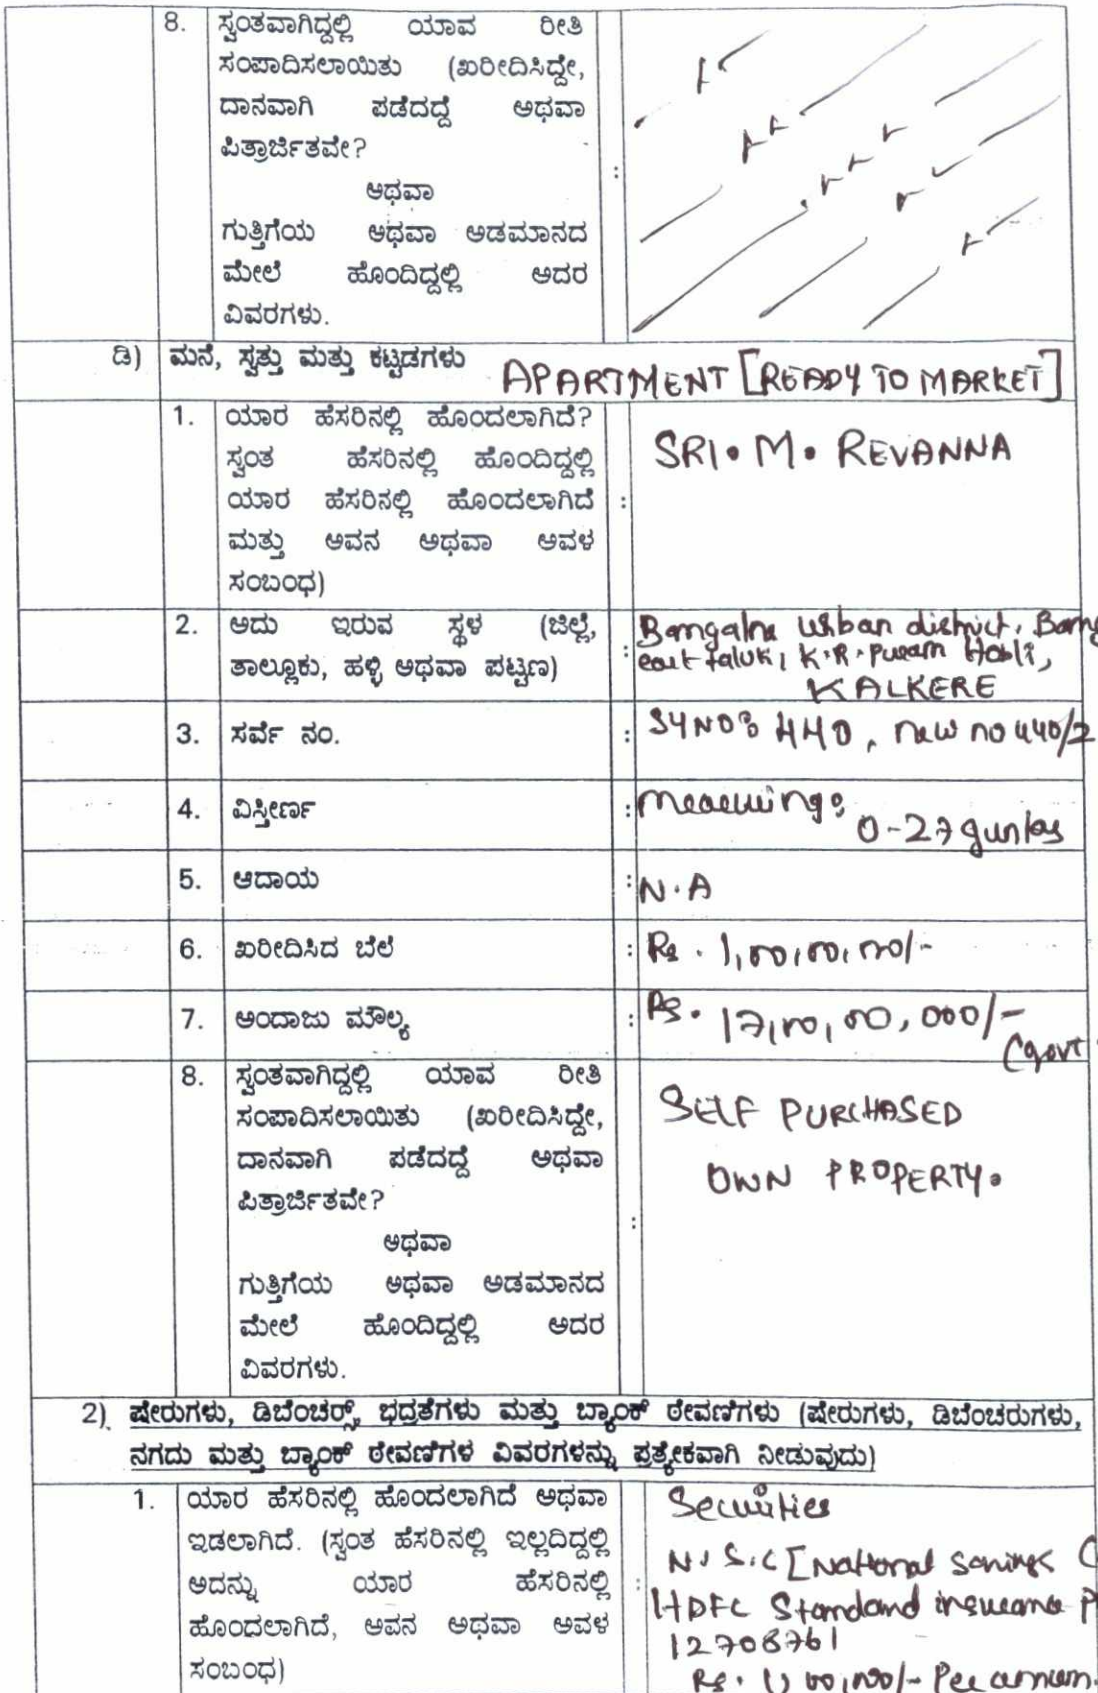 8. ಸ್ವಂತವಾಗಿದ್ದಲ್ಲಿ ಯಾವ ರೀತಿ
ಸಂಪಾದಿಸಲಾಯಿತು (ಖರೀದಿಸಿದ್ದೇ,
ದಾನವಾಗಿ ಪಡೆದದ್ದೆ ಅಥವಾ
ಪಿತ್ರಾರ್ಜಿತವೇ?
:
ಅಥವಾ
ಗುತ್ತಿಗೆಯ ಅಥವಾ ಅಡಮಾನದ
ಮೇಲೆ ಹೊಂದಿದ್ದಲ್ಲಿ ಅದರ
ವಿವರಗಳು.
ಡಿ) ಮನೆ, ಸ್ವತ್ತು ಮತ್ತು ಕಟ್ಟಡಗಳು APARTMENT [READY TO MARKET]
1. ಯಾರ ಹೆಸರಿನಲ್ಲಿ ಹೊಂದಲಾಗಿದೆ?
ಸ್ವಂತ ಹೆಸರಿನಲ್ಲಿ ಹೊಂದಿದ್ದಲ್ಲಿ
ಯಾರ ಹೆಸರಿನಲ್ಲಿ ಹೊಂದಲಾಗಿದೆ
ಮತ್ತು ಅವನ ಅಥವಾ ಅವಳ
ಸಂಬಂಧ)
: SRI. M. REVANNA
2. ಅದು ಇರುವ ಸ್ಥಳ (ಜಿಲ್ಲೆ,
ತಾಲ್ಲೂಕು, ಹಳ್ಳಿ ಅಥವಾ ಪಟ್ಟಣ)
: Bangalore Urban district, Bang
east taluk, K.R. Puram Hobli,
KALKERE
3. ಸರ್ವೆ ನಂ. : SYNO: 440, new no 440/2
4. ವಿಸ್ತೀರ್ಣ : measuring:
0-27 guntas
5. ಆದಾಯ : N.A
6. ಖರೀದಿಸಿದ ಬೆಲೆ : Rs. 1,00,00,000/-
7. ಅಂದಾಜು ಮೌಲ್ಯ : Rs. 17,00,00,000/-
(govt
8. ಸ್ವಂತವಾಗಿದ್ದಲ್ಲಿ ಯಾವ ರೀತಿ
ಸಂಪಾದಿಸಲಾಯಿತು (ಖರೀದಿಸಿದ್ದೇ,
ದಾನವಾಗಿ ಪಡೆದದ್ದೆ ಅಥವಾ
ಪಿತ್ರಾರ್ಜಿತವೇ?
ಅಥವಾ
ಗುತ್ತಿಗೆಯ ಅಥವಾ ಅಡಮಾನದ
ಮೇಲೆ ಹೊಂದಿದ್ದಲ್ಲಿ ಅದರ
ವಿವರಗಳು.
: SELF PURCHASED
OWN PROPERTY.
2) ಷೇರುಗಳು, ಡಿಬೆಂಚರ್ಸ್, ಭದ್ರತೆಗಳು ಮತ್ತು ಬ್ಯಾಂಕ್ ಠೇವಣಿಗಳು (ಷೇರುಗಳು, ಡಿಬೆಂಚರುಗಳು,
ನಗದು ಮತ್ತು ಬ್ಯಾಂಕ್ ಠೇವಣಿಗಳ ವಿವರಗಳನ್ನು ಪ್ರತ್ಯೇಕವಾಗಿ ನೀಡುವುದು)
1. ಯಾರ ಹೆಸರಿನಲ್ಲಿ ಹೊಂದಲಾಗಿದೆ ಅಥವಾ
ಇಡಲಾಗಿದೆ. (ಸ್ವಂತ ಹೆಸರಿನಲ್ಲಿ ಇಲ್ಲದಿದ್ದಲ್ಲಿ
ಅದನ್ನು ಯಾರ ಹೆಸರಿನಲ್ಲಿ
ಹೊಂದಲಾಗಿದೆ, ಅವನ ಅಥವಾ ಅವಳ
ಸಂಬಂಧ)
: Securities
N.S.C [National Savings C
HDFC Standard insurance P
12708761
Rs. 1,00,000/- Per annum.